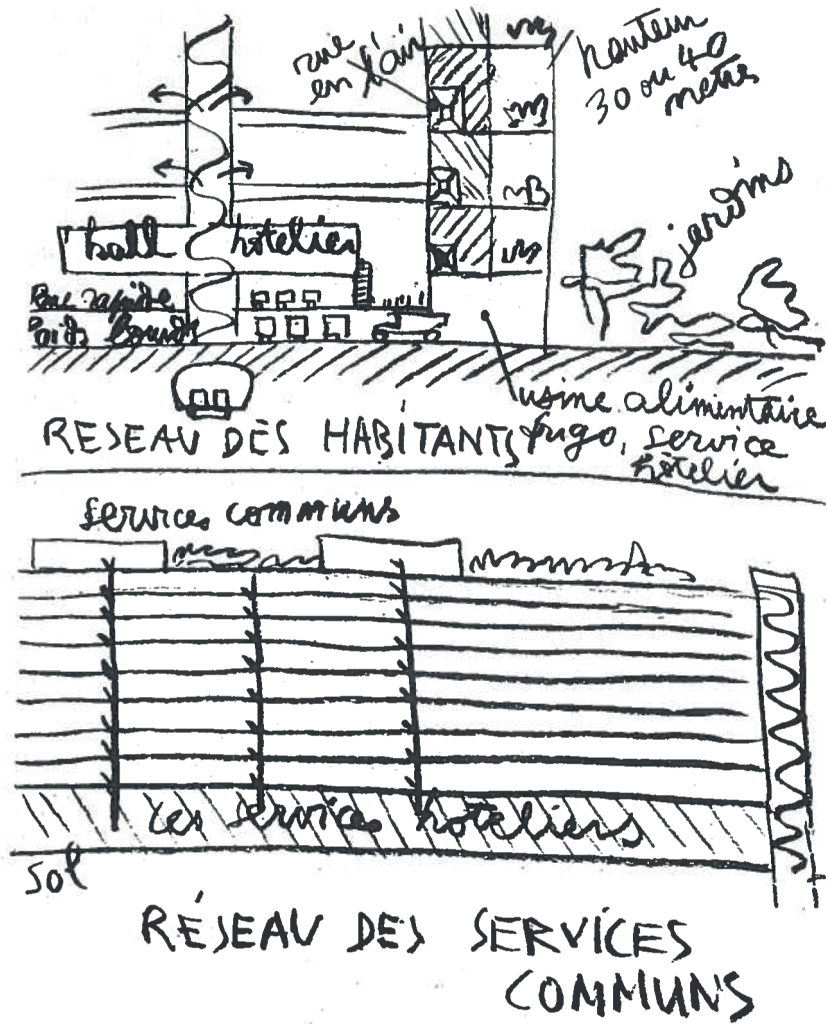 rue
en l'air
hauteur
30 ou 40
metres
jardins
hall hotelier
rapide
Poids lourds
usine alimentaire
frigo, service
hôtelier
RESEAU DES HABITANTS
services communs
Les services hoteliers
sol
RÉSEAU DES SERVICES
COMMUNS